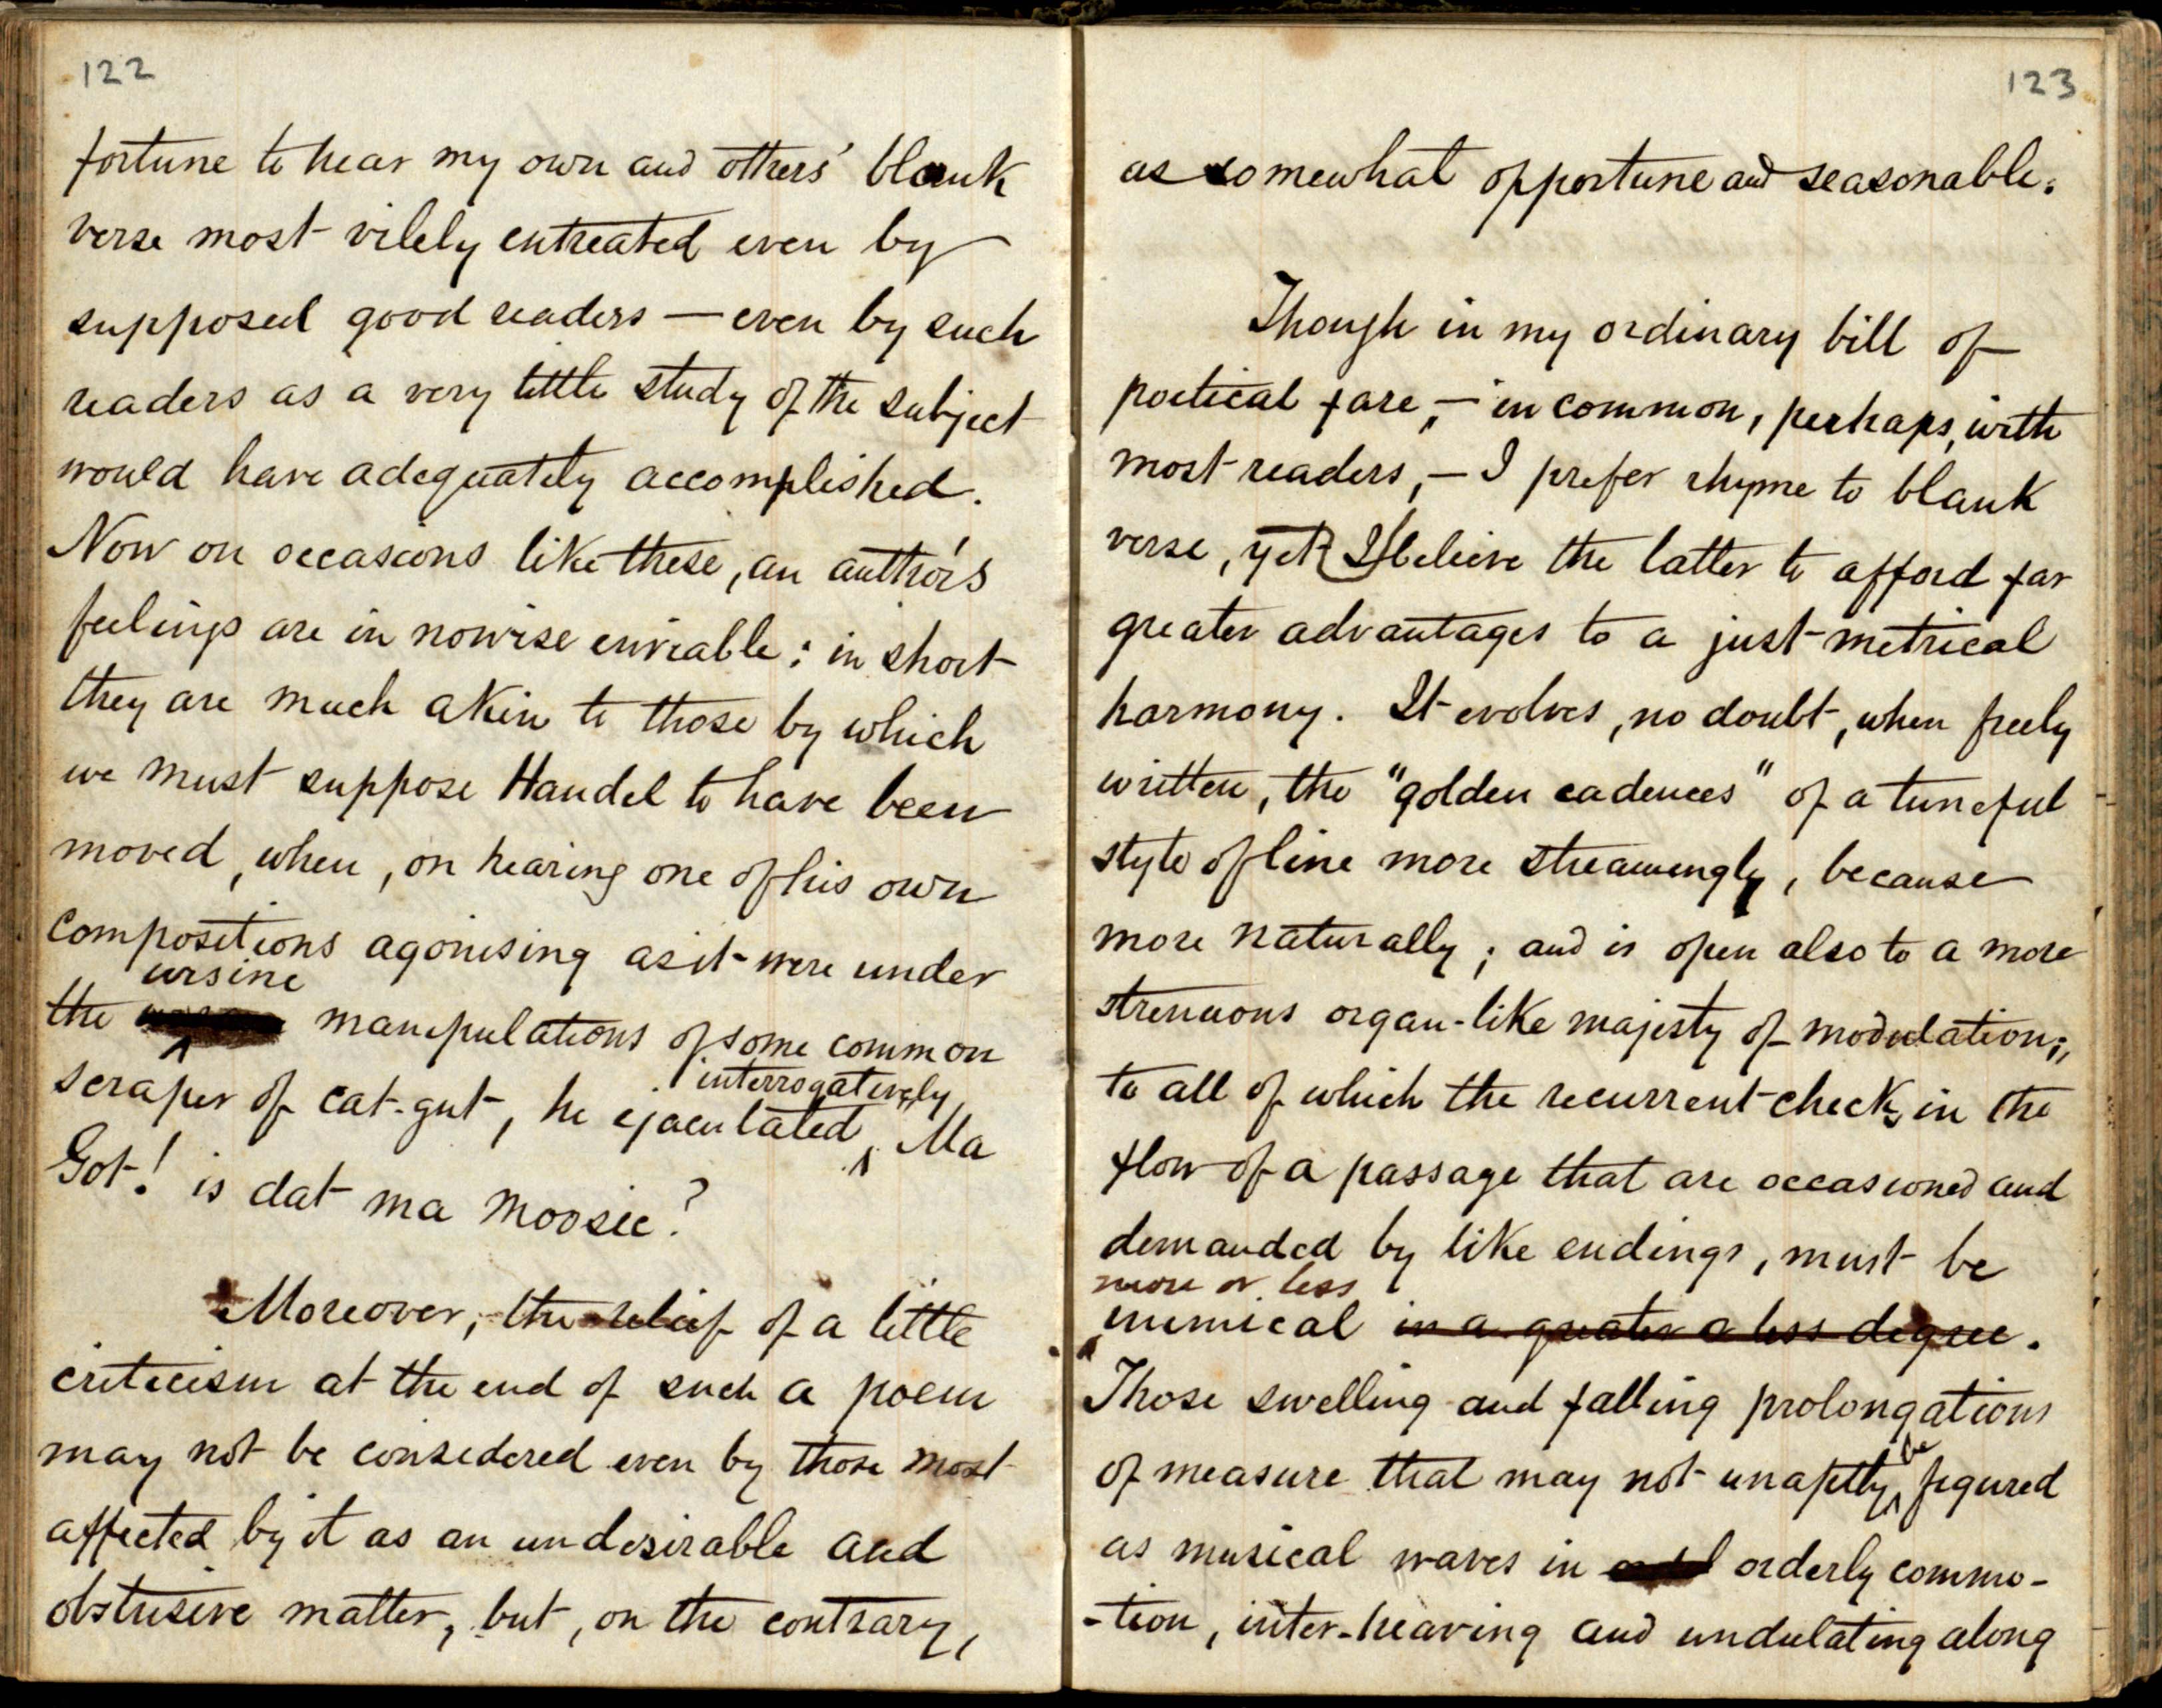 122
fortune to hear my own and others' blank
verse most vilely entreated even by
supposed good readers — even by such
readers as a very little study of the subject
would have adequately accomplished.
Now on occasions like these, an author's
feelings are in nowise enviable: in short
they are much akin to those by which
we must suppose Handel to have been
moved, when, on hearing one of his own
compositions agonising as it were under
ursine
the manipulations of some common
interrogatively,
scraper of cat-gut, he ejaculated, Ma
Got! is dat ma moosic?
Moreover, the relief of a little
criticism at the end of such a poem
may not be considered even by those most
affected by it as an undesirable and
obstrusive matter, but, on the contrary,
123
as somewhat opportune and seasonable.
Though in my ordinary bill of
poetical fare, — in common, perhaps, with
most readers, — I prefer rhyme to blank
verse, yet I believe the latter to afford far
greater advantages to a just metrical
harmony. It evolves, no doubt, when freely
written, the "golden cadences" of a tuneful
style of line more streamingly, because
more naturally; and is open also to a more
strenuous organ-like majesty of modulation;
to all of which the recurrent checks in the
flow of a passage that are occasioned and
demanded by like endings, must be
more or less
inimical in a greater or less degree.
Those swelling and falling prolongations
be
of measure that may not unaptly figured
as musical waves in orderly commo-
-tion, inter-heaving and undulating along